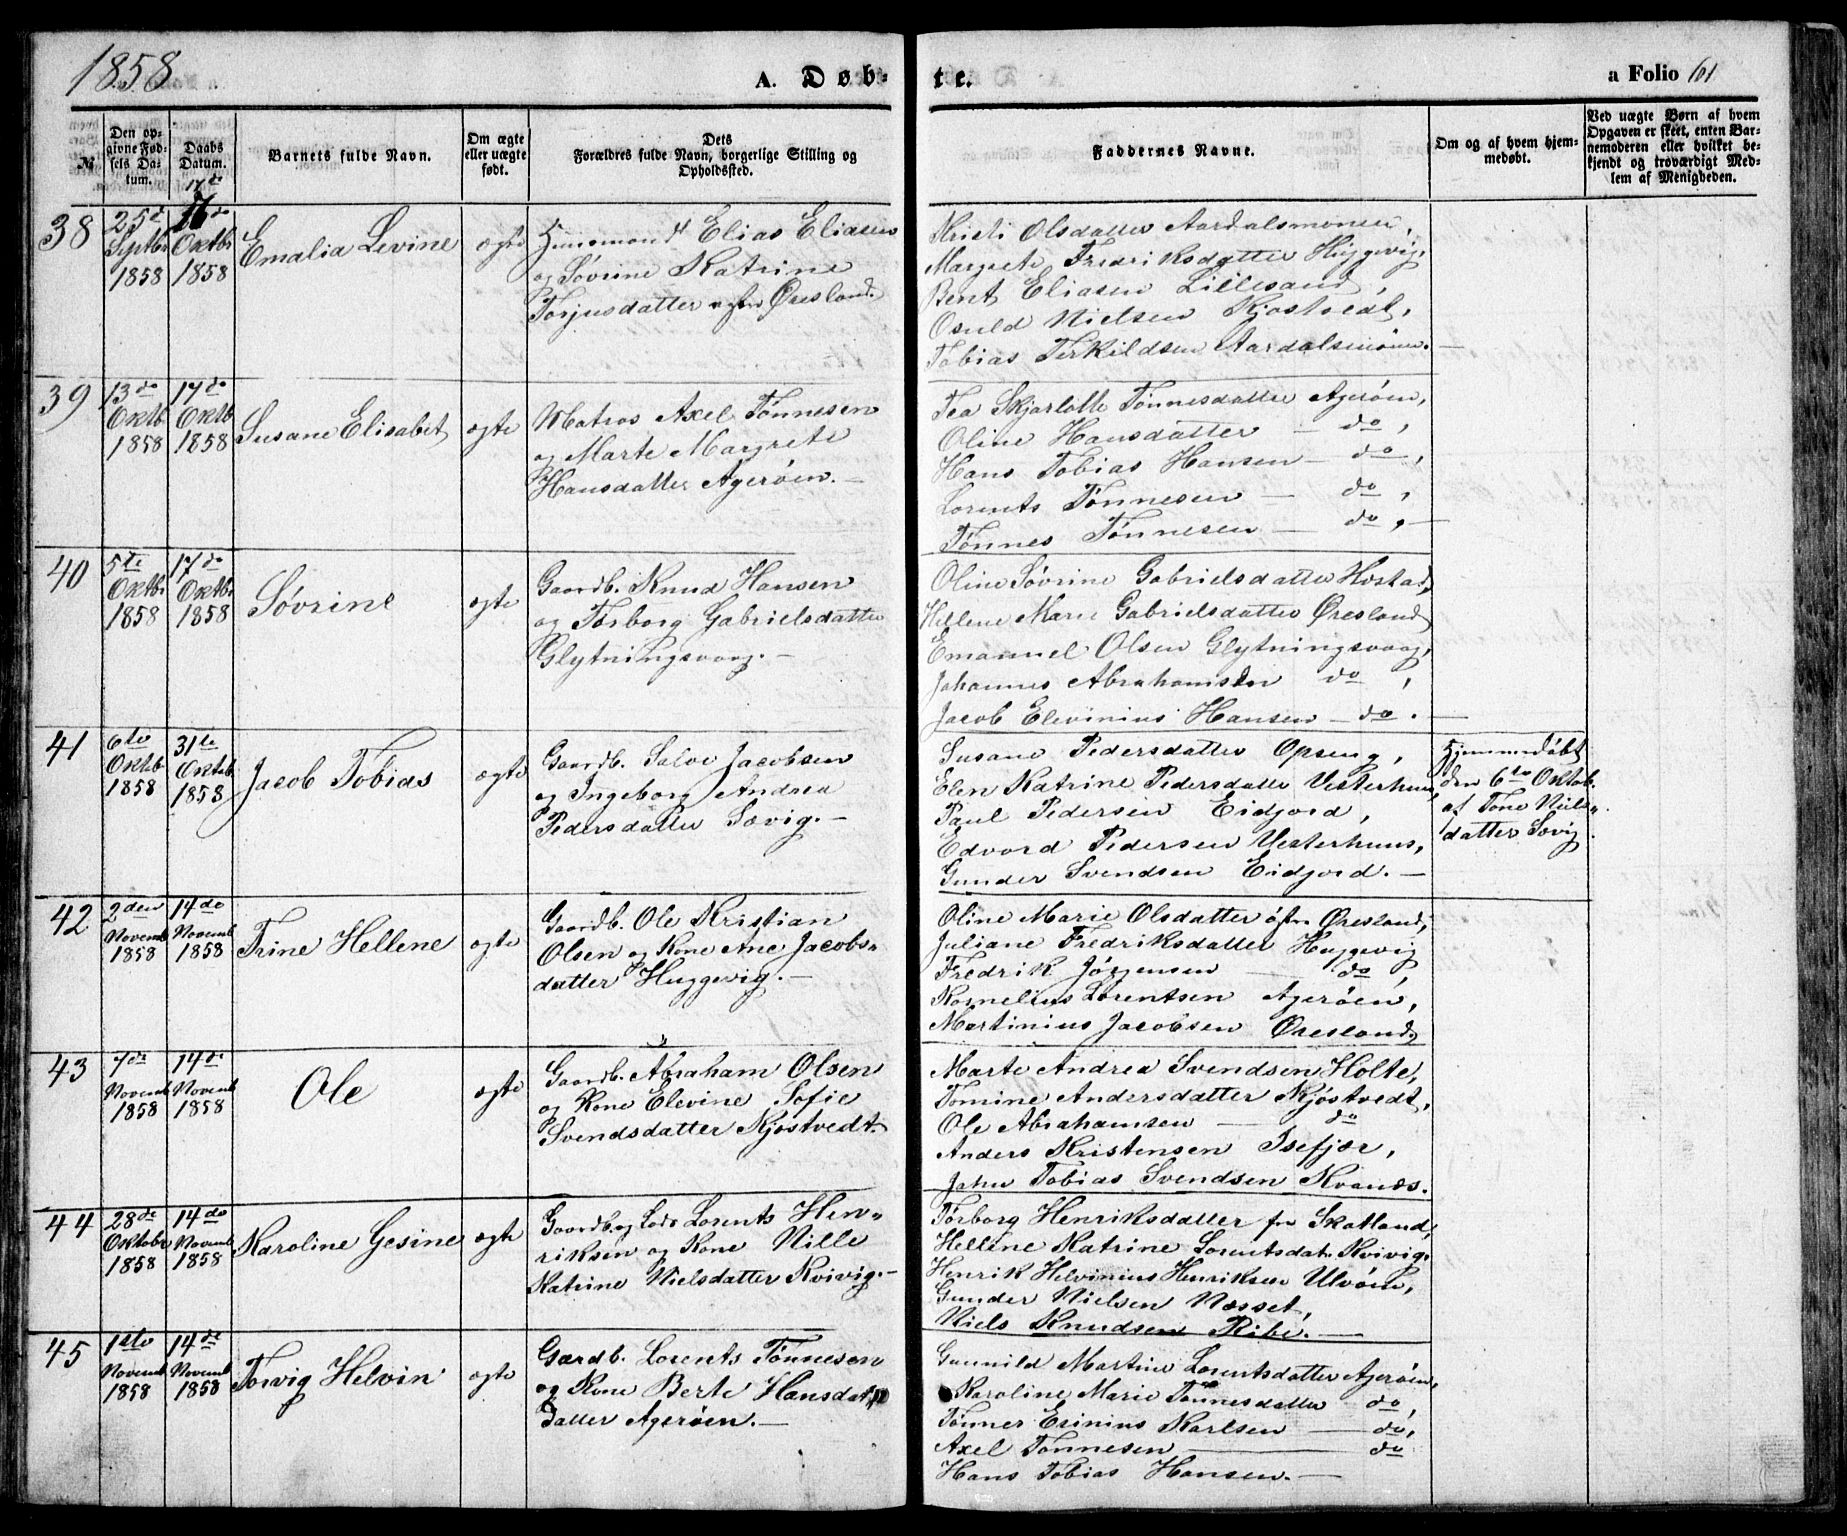 1858
A. Døb-
te.
a Folio 101
№
Den op-
givne Fød-
sels Da-
tum.
Daabs
Datum.
Barnets fulde Navn.
Om ægte
eller uægte
født.
Dets
Forældres fulde Navn, borgerlige Stilling og
Opholdssted.
Faddernes Navne.
Om og af hvem hjem-
medøbt.
Ved uægte Børn af hvem
Opgaven er skeet, enten Bar-
nemoderen eller hvilket be-
kjendt og troværdigt Med-
lem af Menigheden.
38
25de
Septbr
1858
17de
Oktbr
1858
Emalia Levine
ægte
Elias Eliasen
og Søvrine Katrine
Torjusdatter Øresland.
Kristi Olsdatter Aardalsmonen,
Margrete Fredriksdatter Huggevig,
Bent Eliasen Lillesand,
Osuld Nielsen Kjøstvedt,
Tobias Terkildsen Aardalsmonen.
39
13de
Oktb
1858
17de
Oktb
1858
Susane Elisabet
ægte
Matros Axel Tønnesen
og Marte Margrete
Hansdatter Agerøen.
Tea Skjarlotte Tønnesdatter Agerøen,
Oline Hansdatter – do,
Hans Tobias Hansen – do,
Lorents Tønnesen – do,
Tønnes Tønnesen – do,
40
5te
Oktbr
1858
17de
Oktbr
1858
Søvrine
ægte
Gaardb. Knud Hansen
og Torborg Gabrielsdatter
Glytningsvaag.
Oline Søvrine Gabrielsdatter Hostad,
Hellene Marie Gabrielsdatter Øresland,
Emanuel Olsen Glytningsvaag,
Johannes Abrahamsen do,
Jacob Elevinius Hansen – do.
41
6te
Oktob
1858
31te
Oktob
1858
Jacob Tobias
ægte
Gaardb. Salve Jacobsen
og Ingeborg Andrea
Pedersdatter Sævig.
Susane Pedersdatter Opseng,
Elen Katrine Pedersdatter Vesterhuus,
Paul Pedersen Eidjord,
Edvard Pedersen Vesterhuus,
Gunder Svendsen Eidjord.
Hjemmedøbt
den 6te Oktob.
af Tone Niels-
datter Sævig
42
2den
Novemb
1858
14de
Novemb
1858
Trine Hellene
ægte
Gaardb. Ole Kristian
Olsen og Kone Ane Jacobs-
datter Huggevig.
Oline Marie Olsdatter Øresland,
Juliane Fredriksdatter Huggevig
Fredrik Jørgensen – do,
Kornelius Lorentsen Agerøen,
Martinius Jacobsen Øresland,
43
7de
Novemb
1858
14de
Novemb
1858
Ole
ægte
Gaardb. Abraham Olsen
og Kone Elevine Sofie
Svendsdatter Kjøstvedt.
Marte Andrea Svendsen Holte,
Tomine Andersdatter Kjøstvedt,
Ole Abrahamsen – do
Anders Kristensen Isefjær,
John Tobias Svendsen Kvanes.
44
28de
Oktobr
1858
14de
Novemb
1858
Karoline Gesine
ægte
Gaardb. og Lods Lorents Hen-
riksen og Kone Nille
Katrine Nielsdatter Kvivig.
Torborg Henriksdatter fr Skotland,
Hellene Katrine Lorentsdat. Kvivig.
Henrik Helvinius Henriksen Ulvøen,
Gunder Nielsen Næsset,
Niels Knudsen Ribe.
45
1ste
Novemb
1858
14de
Novemb
1858
Torvig Helvin
ægte
Gaardb. Lorents Tønnesen
og Kone Berte Hansdat
datter Agerøen.
Gunnild Martine Lorentsdatter Agerøen,
Karoline Marie Tønnesdatter do,
Tønner Erinius Karlsen – do,
Axel Tønnesen – do
Hans Tobias Hansen.